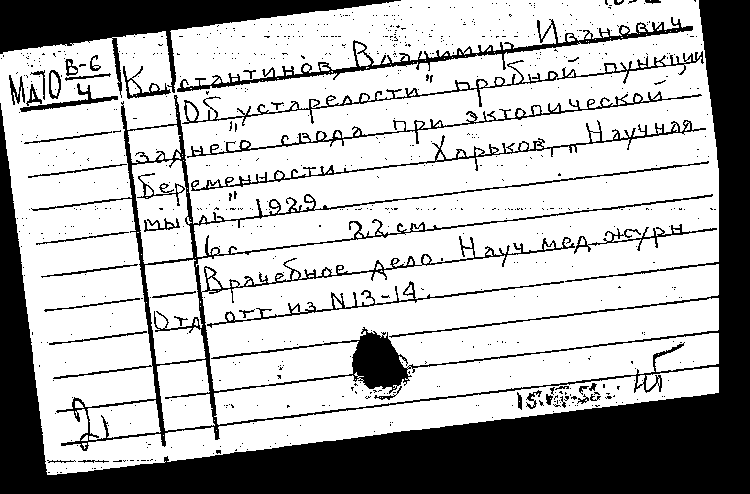 МдПО В-6/4
Константинов, Владимир Иванович
Об „устарелости" пробной пункции
заднего свода при эктопической
беременности. Харьков, „Научная
мысль", 1929.
6 с. 22 см.
Врачебное дело. Науч. мед. журн
Отд. отт из N 13-14.
2)